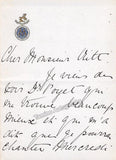 Cher Monsieur Vitt
Je viens de
voir Dr Poyet qui
me trouve beaucoup
mieux et qui m'a
dit que je pourrai
chanter Mercredi